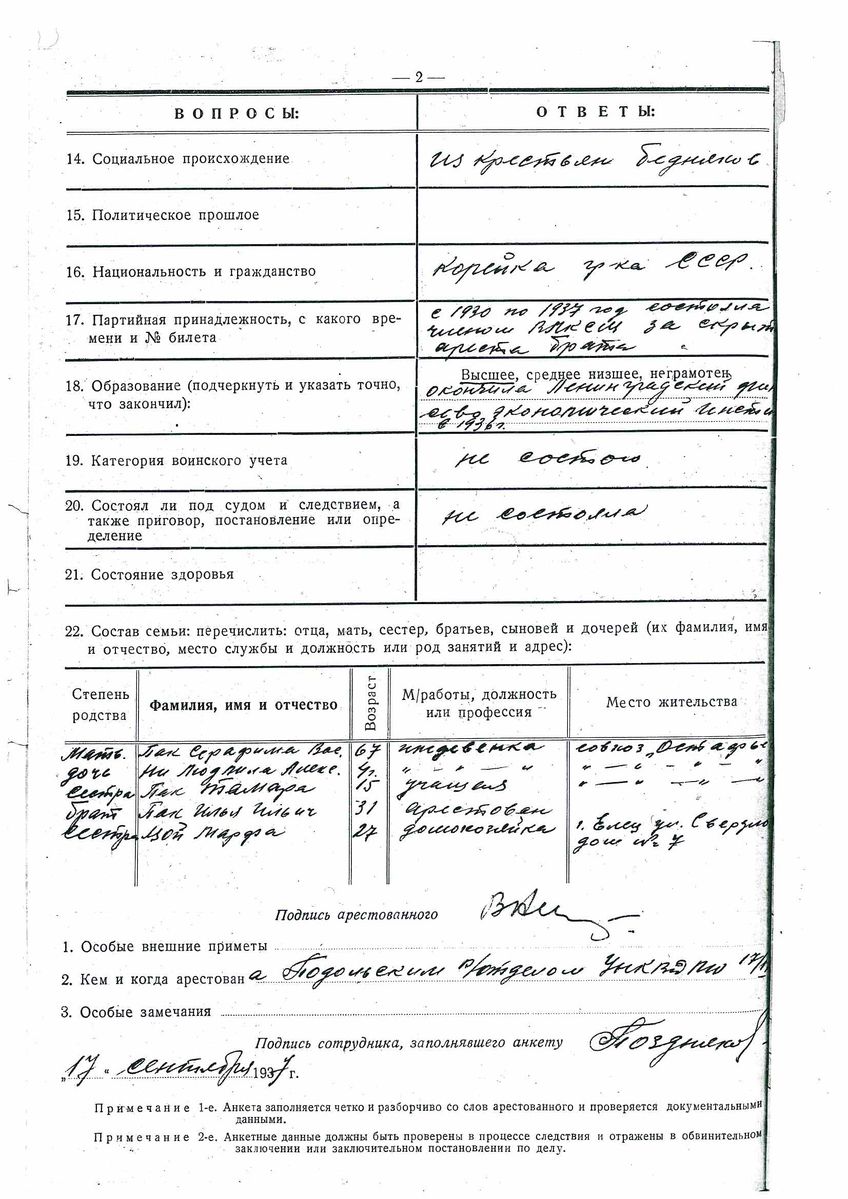 — 2 —
ВОПРОСЫ: ОТВЕТЫ:
14. Социальное происхождение из крестьян бедняков
15. Политическое прошлое
16. Национальность и гражданство Корейка гр-ка СССР.
17. Партийная принадлежность, с какого вре- с 1930 по 1937 год состояла
мени и № билета членом ВЛКСМ за скрыт
ареста брата
18. Образование (подчеркнуть и указать точно, Высшее, среднее низшее, неграмотен,
что закончил): окончила Ленинградский фин
экономический инсти
в 1936 г.
19. Категория воинского учета не состою
20. Состоял ли под судом и следствием, а не состояла
также приговор, постановление или опре-
деление
21. Состояние здоровья
22. Состав семьи: перечислить: отца, мать, сестер, братьев, сыновей и дочерей (их фамилия, имя
и отчество, место службы и должность или род занятий и адрес):
Степень родства Фамилия, имя и отчество Возраст М/работы, должность или профессия Место жительства
Мать. Пак Серафима Вас. 67 иждевенка совхоз „Остафье
дочь Ни Людмила Алекс. 4г. " — " — " " — " — "
Сестра Пак Тамара 15 учащаяя " — " — "
брат Пак Илья Ильич 31 арестован
Сестра Цой Марфа 27 домохозяйка г. Елец ул. Свердло
дом № 7
Подпись арестованного
1. Особые внешние приметы
2. Кем и когда арестована Подольским р/отделом УНКВД МО 17/
3. Особые замечания
Подпись сотрудника, заполнявшего анкету Поздняков
„17 " сентября 1937 г.
Примечание 1-е. Анкета заполняется четко и разборчиво со слов арестованного и проверяется документальными
данными.
Примечание 2-е. Анкетные данные должны быть проверены в процессе следствия и отражены в обвинительном
заключении или заключительном постановлении по делу.